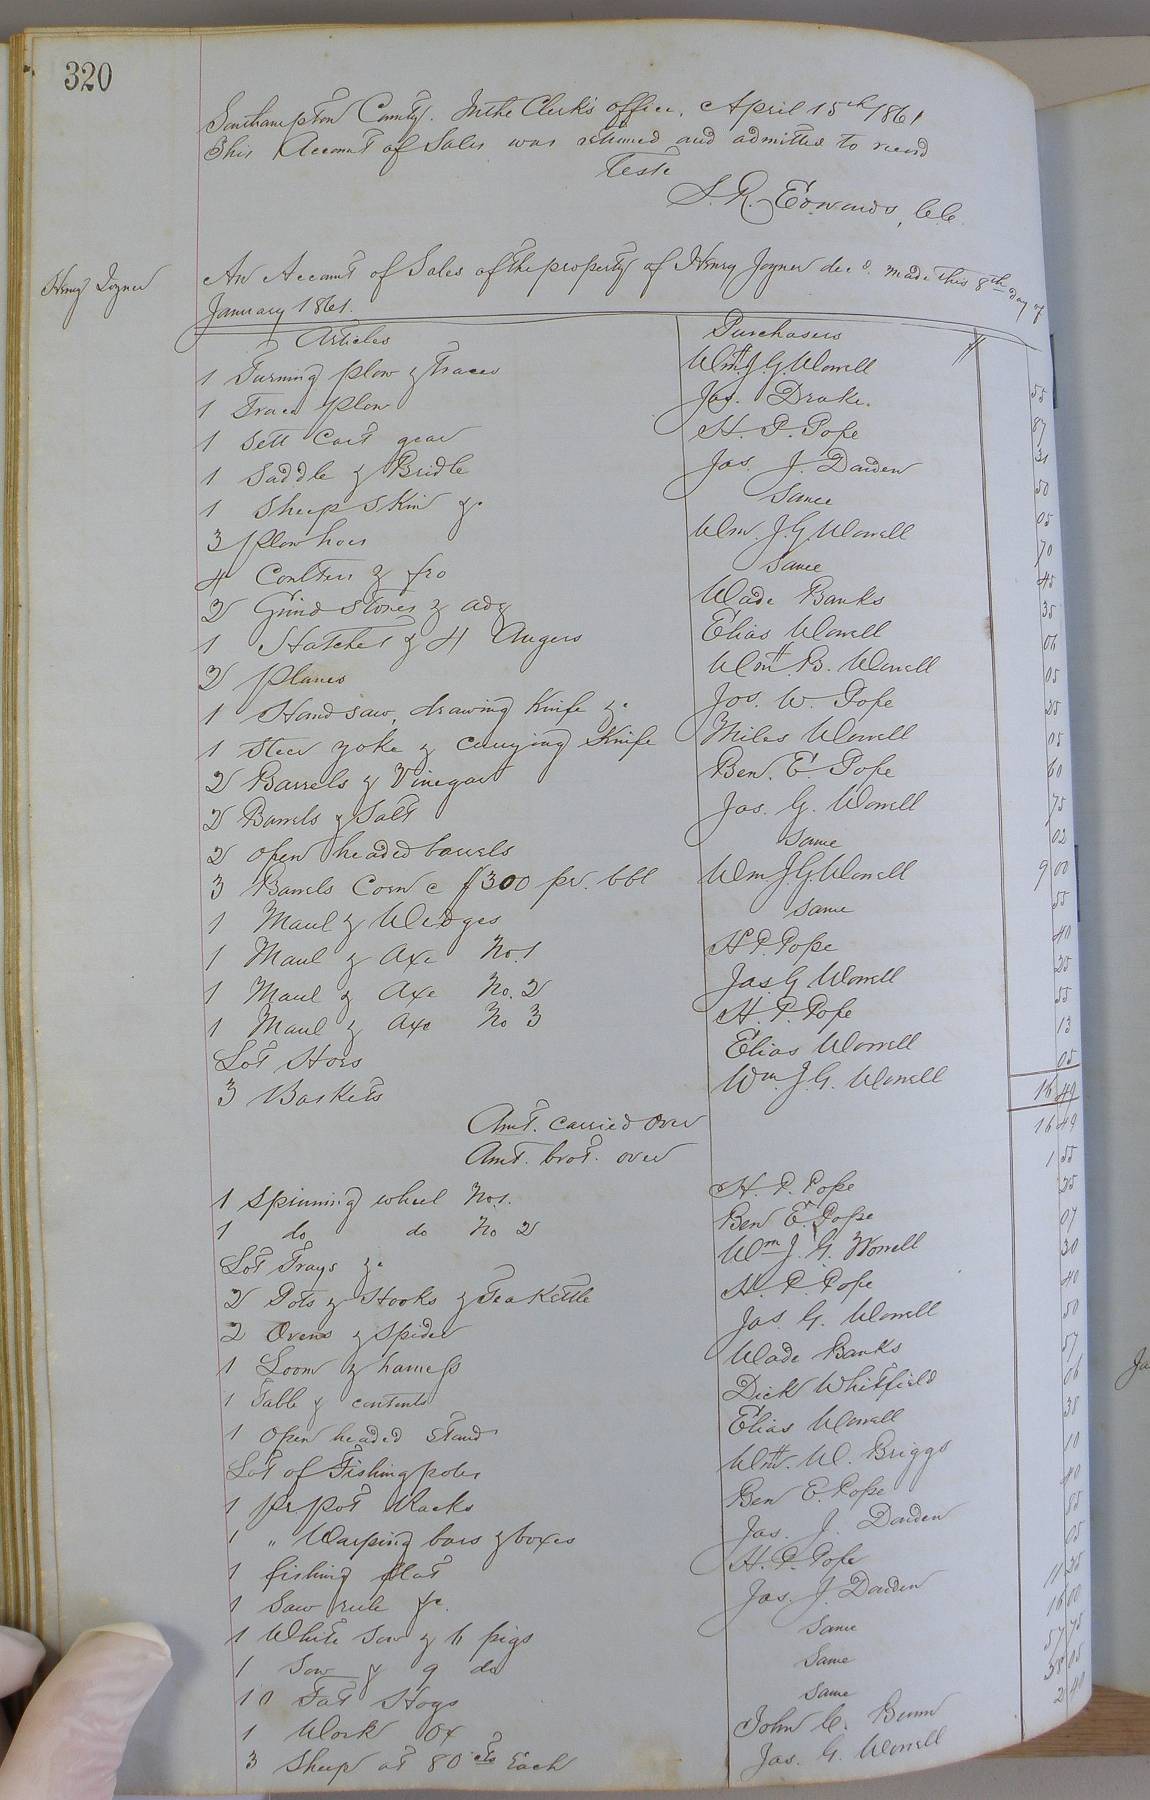 320
Southampton County. In the Clerk's office, April 15th 1861
This Account of Sales was returned and admitted to record
Teste
L. R. Edwards, C.C.
Henry Joyner
An Account of Sales of the property of Henry Joyner decd. made this 8th day of
January 1861.
Articles Purchasers $
1 Turning Plow & Traces Wm. J. G. Worrell 55
1 Trace Plow Jas. Drake. 87
1 Sett Cart gear H. P. Pope 31
1 Saddle & Bridle Jas. J. Darden 50
1 Sheep Skin &c Same 05
3 Plow hoes Wm. J. G. Worrell 70
4 Coulters & fro Same 45
2 Grind Stones & adz Wade Banks 35
1 Hatchet & 4 Augers Elias Worrell 06
2 Planes Wm. B. Worrell 05
1 Hand saw, drawing Knife &c Jos. W. Pope 25
1 Steer yoke & currying Knife Miles Worrell 05
2 Barrels & Vinegar Ben. E. Pope 60
2 Barrels & Salt Jas. G. Worrell 75
2 open headed barrels Same 02
3 Barrels Corn @ $3 00 pr. bbl Wm J. G. Worrell 9 00
1 Maul & Wedges Same 55
1 Maul & Axe No. 1 H P. Pope 40
1 Maul & Axe No. 2 Jas G Worrell 25
1 Maul & Axe No 3 H. P. Pope 55
Lot Hoes Elias Worrell 13
3 Baskets Wm. J. G. Worrell 05
16 49
Amt. carried over 16 49
Amt. brot. over
1 Spinning wheel No. 1. H. P. Pope 1 55
1 do do No 2 Ben E. Pope 25
Lot Trays &c Wm J. G. Worrell 07
2 Pots & Hooks & Tea Kettle H. P. Pope 30
2 Ovens & Spider Jas. G. Worrell 40
1 Loom & harness Wade Banks 50
1 Table & contents Dick Whitfield 57
1 Open headed Stand Elias Worrell 06
Lot of Fishing poles Wm. W. Briggs 38
1 pr. pot Racks Ben E. Pope 10
1 " Warping bars & boxes Jas. J. Darden 40
1 fishing flat H. P. Pope 55
1 Saw rule &c. Jas. J. Darden 05
1 White Sow & 6 pigs Same 11 25
1 Sow & 9 do Same 16 00
10 Fat Hogs Same 57 75
1 Work Ox John C. Bunn 38 05
3 Sheep at 80 cts Each Jas. G. Worrell 2 40
Ja